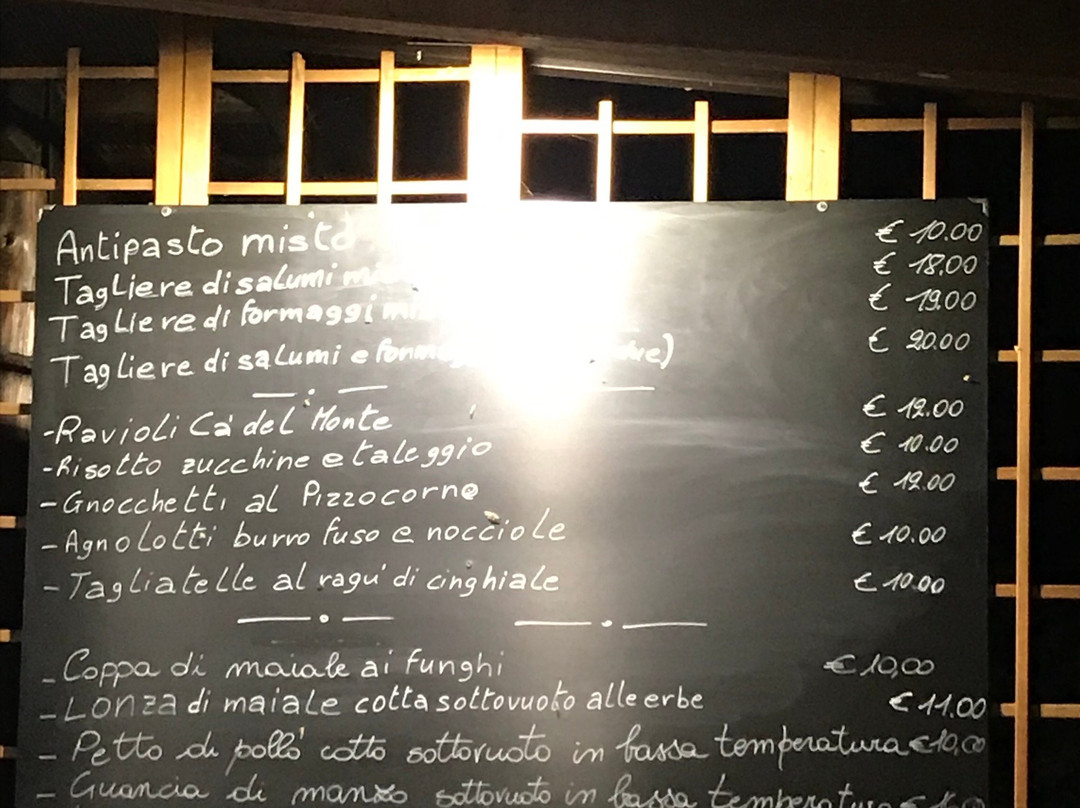 Antipasto misto € 10.00
Tagliere di salumi € 18.00
Tagliere di formaggi € 19.00
Tagliere di salumi e € 20.00
- Ravioli Ca' del Monte € 12.00
- Risotto zucchine e taleggio € 10.00
- Gnocchetti al Pizzocorno € 12.00
- Agnolotti burro fuso e nocciole € 10.00
- Tagliatelle al ragu' di cinghiale € 10.00
- Coppa di maiale ai funghi € 10,00
- Lonza di maiale cotta sottovuoto alle erbe € 11.00
- Petto di pollo' cotto sottovuoto in bassa temperatura € 10,00
- Guancia di manzo sottovuoto in bassa temperatura €